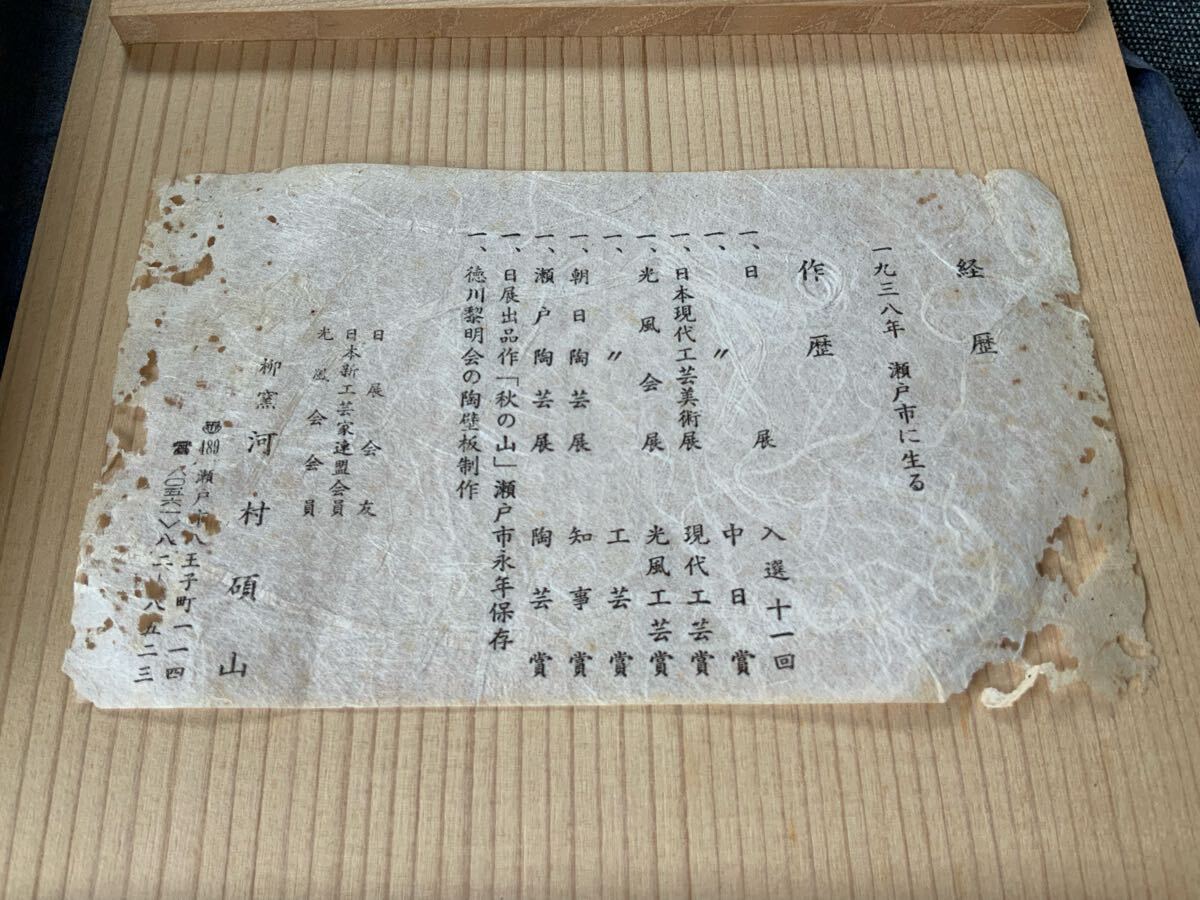 経歴
一九三八年 瀬戸市に生る
作歴
一、日展 入選十一回
一、〃 中日賞
一、日本現代工芸美術展 現代工芸賞
一、光風会展 光風工芸賞
一、〃 工芸賞
一、朝日陶芸展 知事賞
一、瀬戸陶芸展 陶芸賞
一、日展出品作「秋の山」瀬戸市永年保存
一、徳川黎明会の陶壁板制作
日展会友
日本新工芸家連盟会員
光風会会員
柳窯 河村碩山
〒489 瀬戸市八王子町一一四
☎〈〇五六一〉八二-八五二三